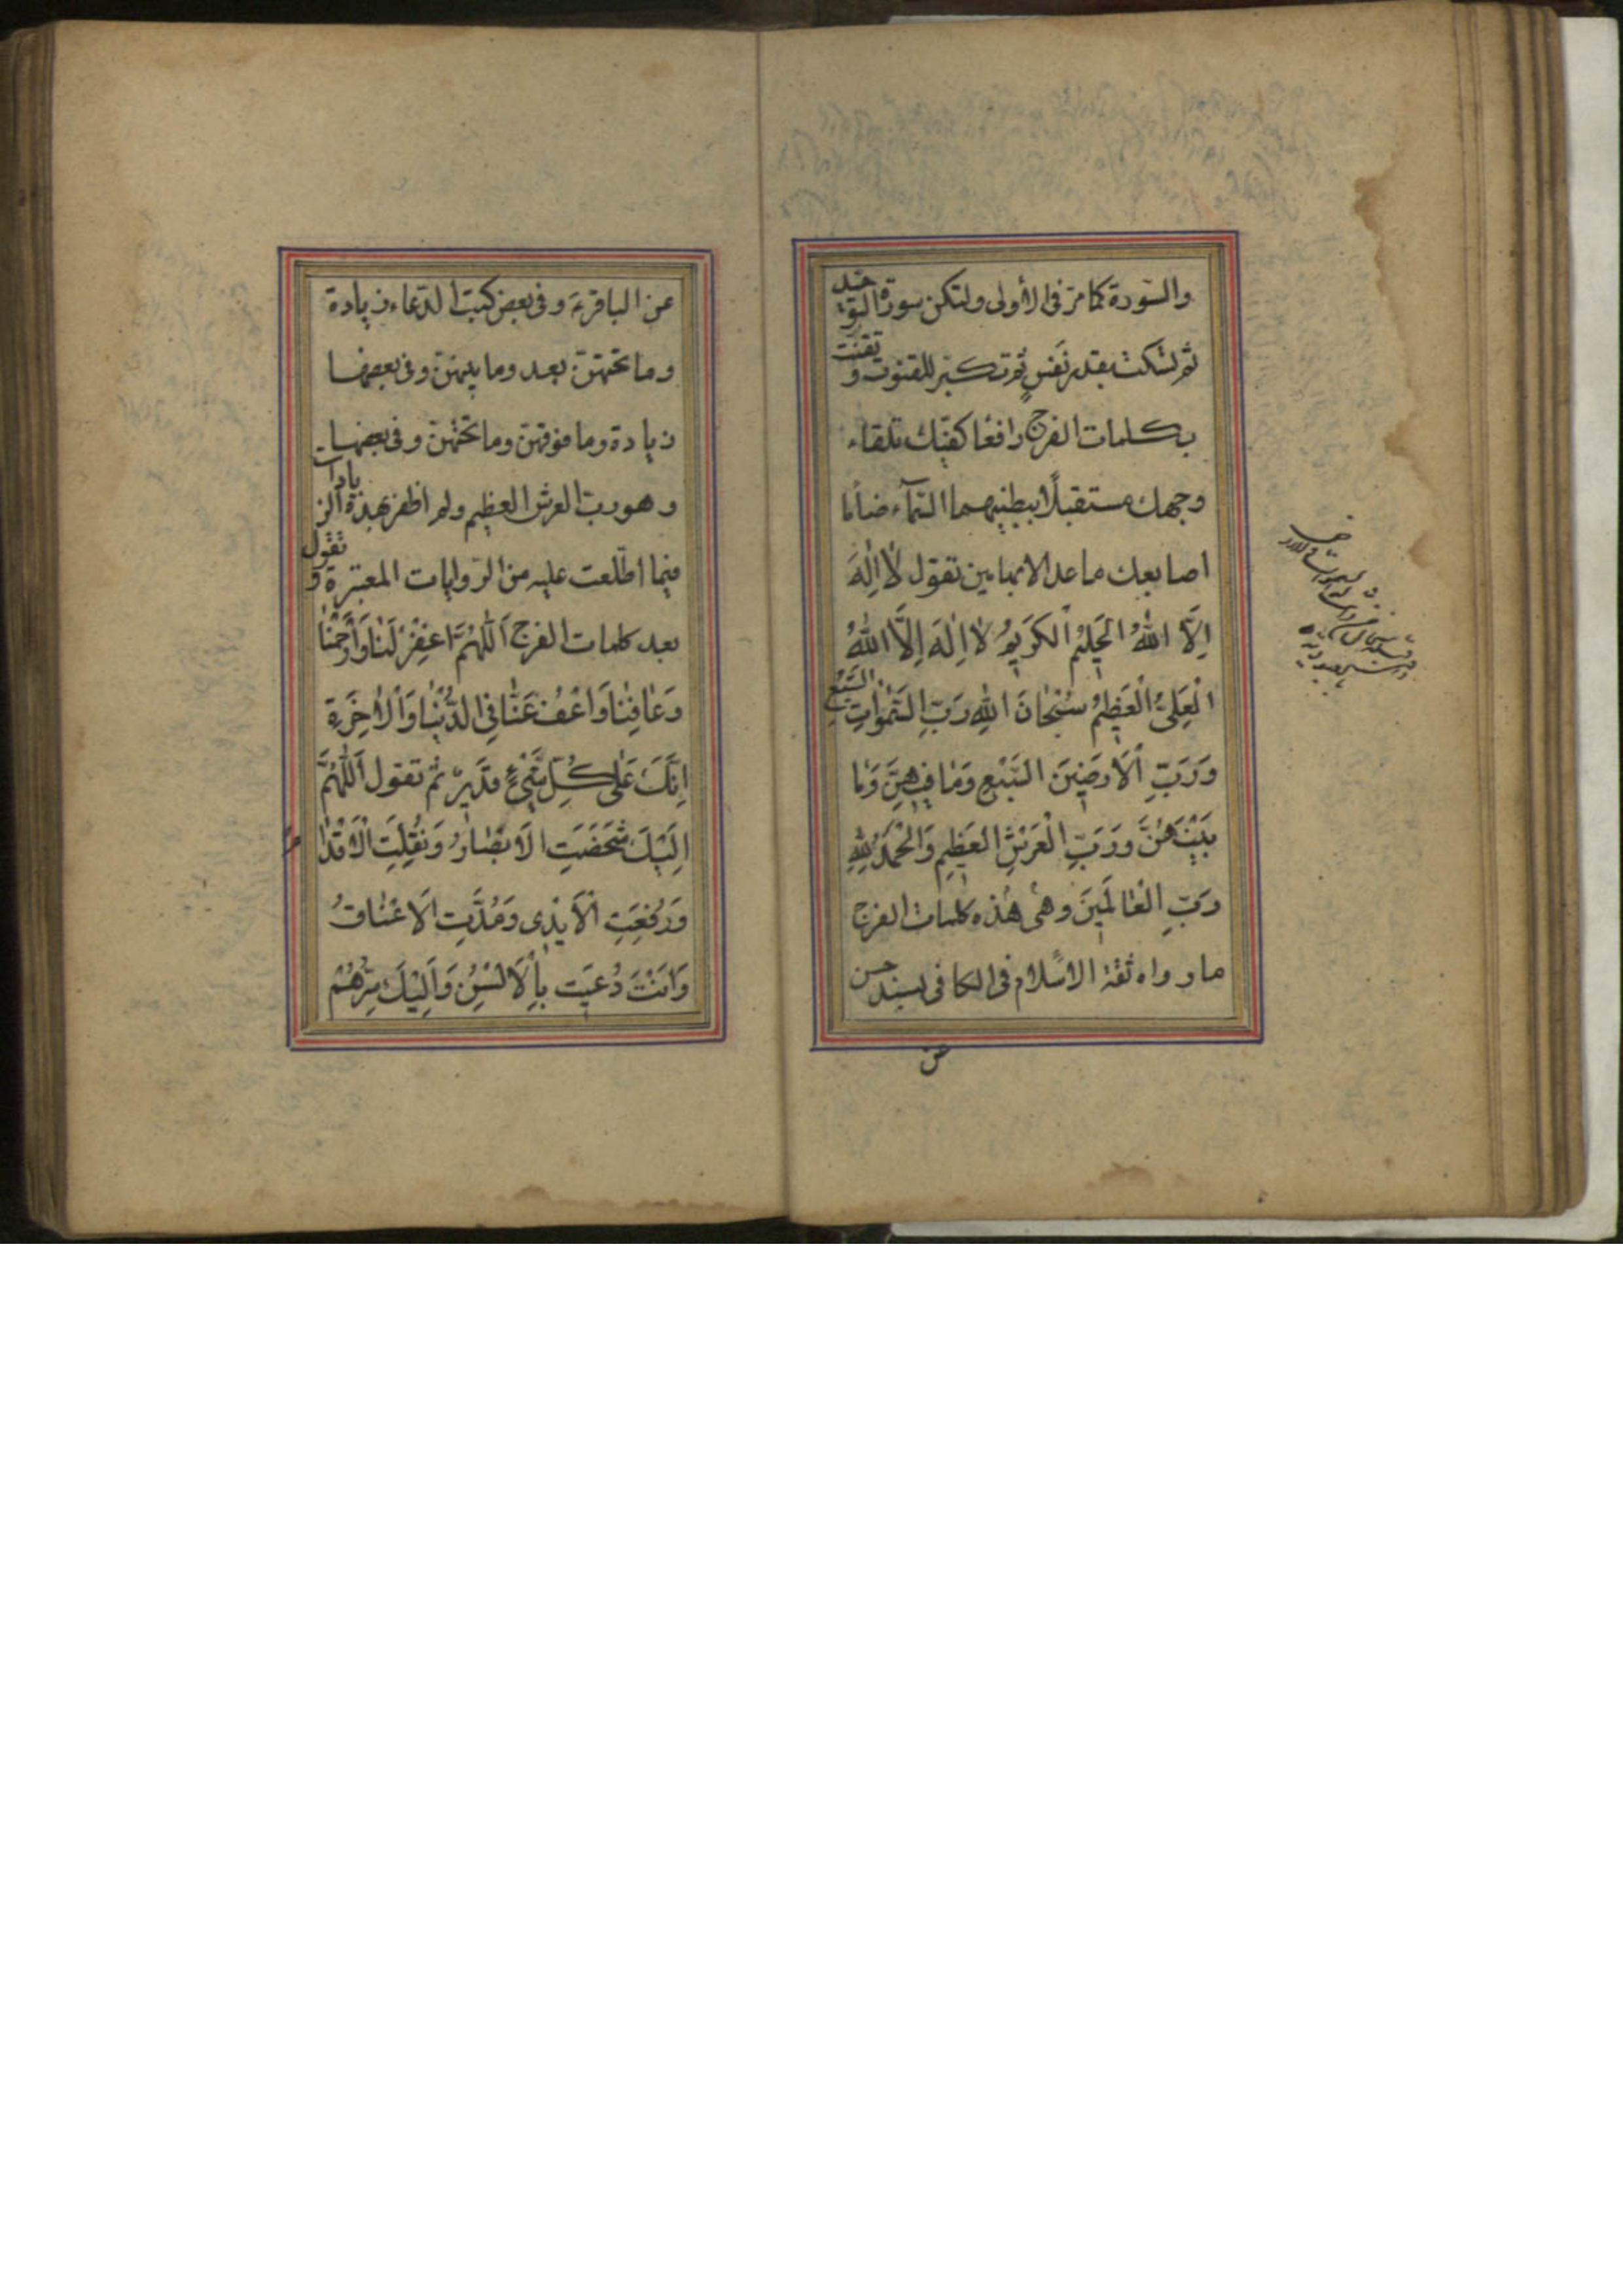 والسورة كما مرّ في الأولى ولتكن سورة التوحيد
ثم تسكت بقدر نَفَسٍ ثم تكبّر للقنوت و تقنت
بكلمات الفرج رافعًا كفّيك تلقاء
وجهك مستقبلًا ببطنيهما السّمآء ضامّا
اصابعك ما عدا الابهامين تقول لٰا اِلٰهَ
اِلَّا اللّٰهُ الْحَلِيْمُ الْكَرَيمُ لٰا اِلٰهَ اِلَّا اللّٰهُ
الْعَلِىُّ الْعَظِيمُ سُبْحٰانَ اللّٰهِ رَبِّ السَّمٰوٰاتِ السَّبْعِ
وَرَبِّ الْاَرَضِيْنَ السَّبْعِ وَمٰا فِيهِنَّ وَمٰا
بَيْنَهُنَّ وَرَبِّ الْعَرْشِ الْعَظِيمِ وَالْحَمْدُ لِلّٰهِ
رَبِّ الْعٰالَمِينَ وهى هٰذه كلمات الفرج
ما رواه ثقة الاسلام فى الكافى بسند حسن
عن
عن الباقر ع و فى بعض كتب الدعاء زيادة
و ما تحتهنّ بعد و ما بينهنّ و فى بعضها
زيادة و ما فوقهنّ و ما تحتهنّ و فى بعضها
و هو ربّ العرش العظيم و لم اظفر بهذه الزيادات
فيما اطّلعت عليه من الروايات المعتبرة و تقول
بعد كلمات الفرج اَللّٰهُمَّ اغْفِرْ لَنٰا وَارْحَمْنٰا
وَعٰافِنٰا وَاعْفُ عَنّٰا فِى الدُّنْيٰا وَالْاٰخِرَةِ
اِنَّكَ عَلٰى كُلِّ شَىْءٍ قَدِيرٌ ثم تقول اَللّٰهُمَّ
اِلَيْكَ شَخَصَتِ الْاَبْصٰارُ وَنُقِلَتِ الْاَقْدٰامُ
وَرُفِعَتِ الْاَيْدِى وَمُدَّتِ الْاَعْنٰاقُ
وَاَنْتَ دُعِيْتَ بِالْاَلْسُنِ وَاِلَيْكَ سِرُّهُمْ